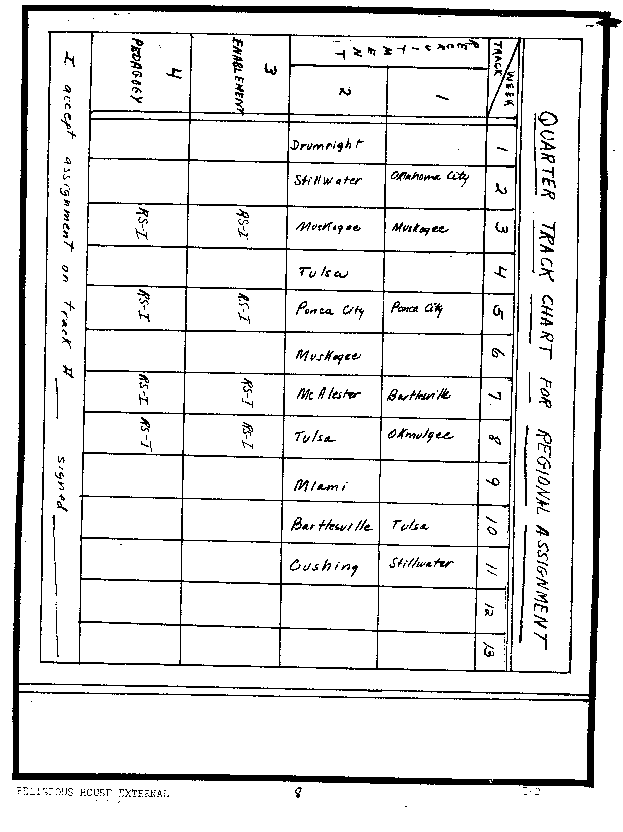 QUARTER TRACK CHART FOR REGIONAL ASSIGNMENT
WEEK 1 2 3 4 5 6 7. 8 9 10 11 12 13
TRACK
RECRUITMENT
1 Oklahoma City Muskogee Ponca City Bartlesville OKmulgee Tulsa Stillwater
2 Drumright Stillwater Muskogee Tulsa Ponca City Muskogee McAlester Tulsa Miami Bartlesville Cushing
3 ENABLEMENT RS-I RS-I RS-I RS-I
4 PEDAGOGY RS-I RS-I RS-I RS-I
I accept assignment on track # ____ signed ____
RELIGIOUS HOUSE EXTERNAL 8